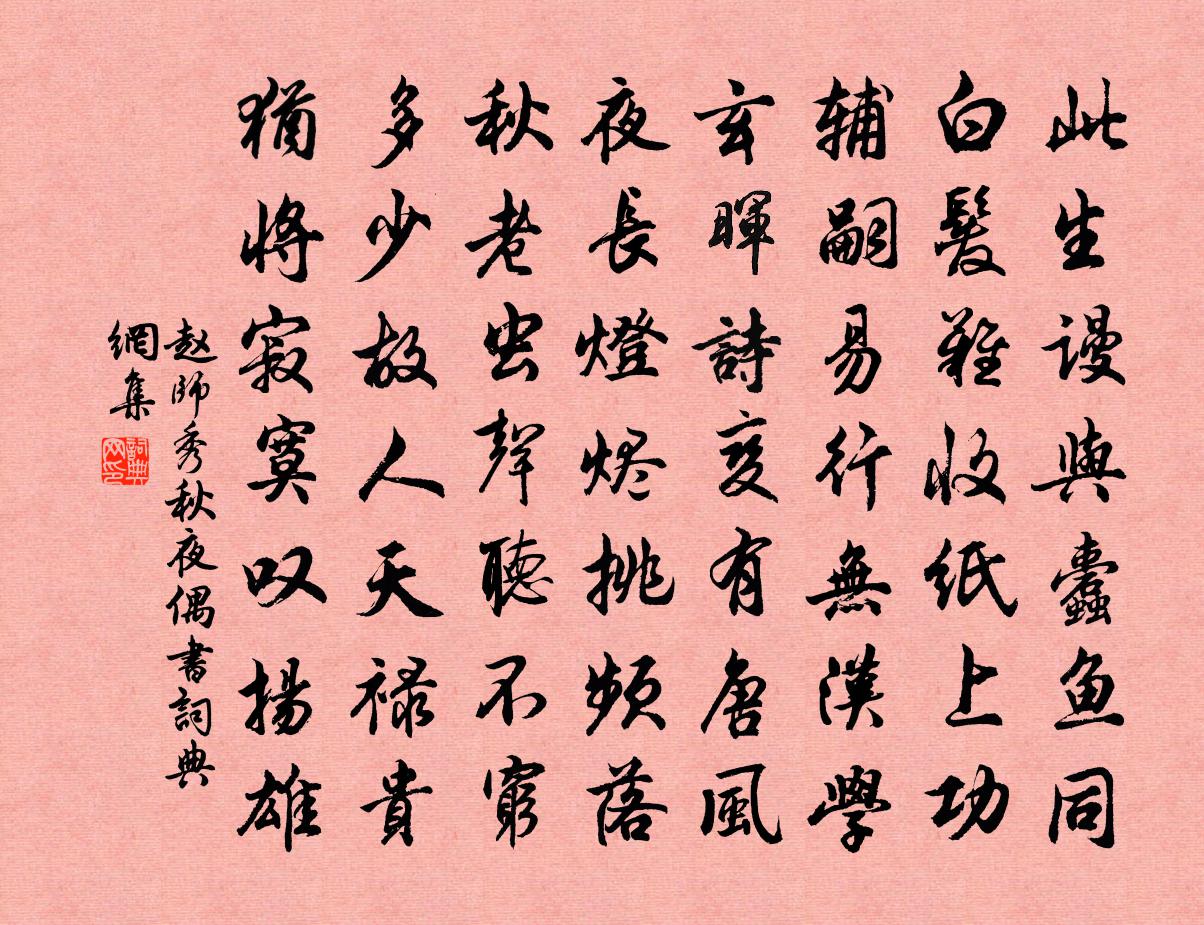 此生謾與蠹魚同
白髮難收紙上功
輔嗣易行無漢學
玄暉詩變有唐風
夜長燈烬挑頻落
秋老虫聲聽不窮
多少故人天禄貴
猶將寂寞叹揚雄
赵師秀秋夜偶書詞典
網集
詞典
网印